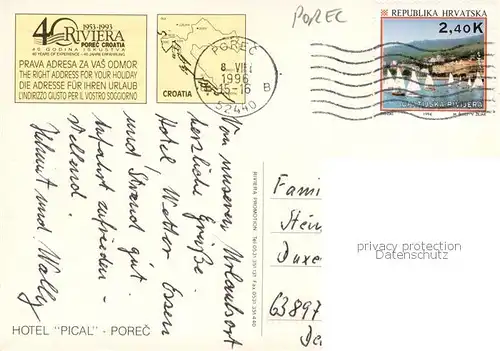 1953-1993
40 RIVIERA
POREČ CROATIA
40 GODINA ISKUSTVA
40 YEARS OF EXPERIENCE • 40 JAHRE ERFAHRUNG
PRAVA ADRESA ZA VAŠ ODMOR
THE RIGHT ADDRESS FOR YOUR HOLIDAY
DIE ADRESSE FÜR IHREN URLAUB
L'INDIRIZZO GIUSTO PER IL VOSTRO SOGGIORNO
CROATIA
POREC
POREČ
8. VII
1996
15-16
B
52440
REPUBLIKA HRVATSKA
2,40K
RIVIJERA
1996
Von unserem Urlaubsort
herzliche Grüße.
Hotel, Wetter, Essen
und Strand gut.
Anfahrt zufrieden-
stellend.
Helmut und Wally
RIVIERA PROMOTION
Fami
Stein
Duxe
63897
De
HOTEL "PICAL" - POREČ
privacy protection
watermark